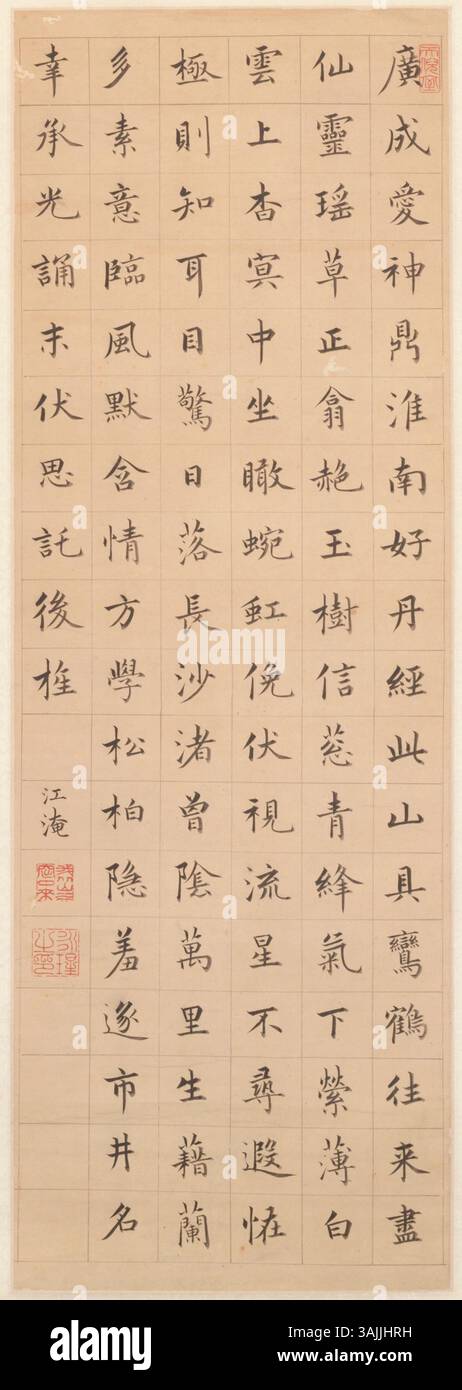 廣成愛神鼎淮南好丹經此山具鸞鶴往来盡
仙靈瑶草正翕赩玉樹信葱青絳氣下縈薄白
雲上杳冥中坐瞰蜿虹俛伏視流星不尋遐怪
極則知耳目驚日落長沙渚曾陰萬里生藉蘭
多素意臨風默含情方學松柏隐羞逐市井名
幸承光誦末伏思託後旌
江淹
永瑆之印
alamy
Image ID: 3AJJHRH
www.alamy.com